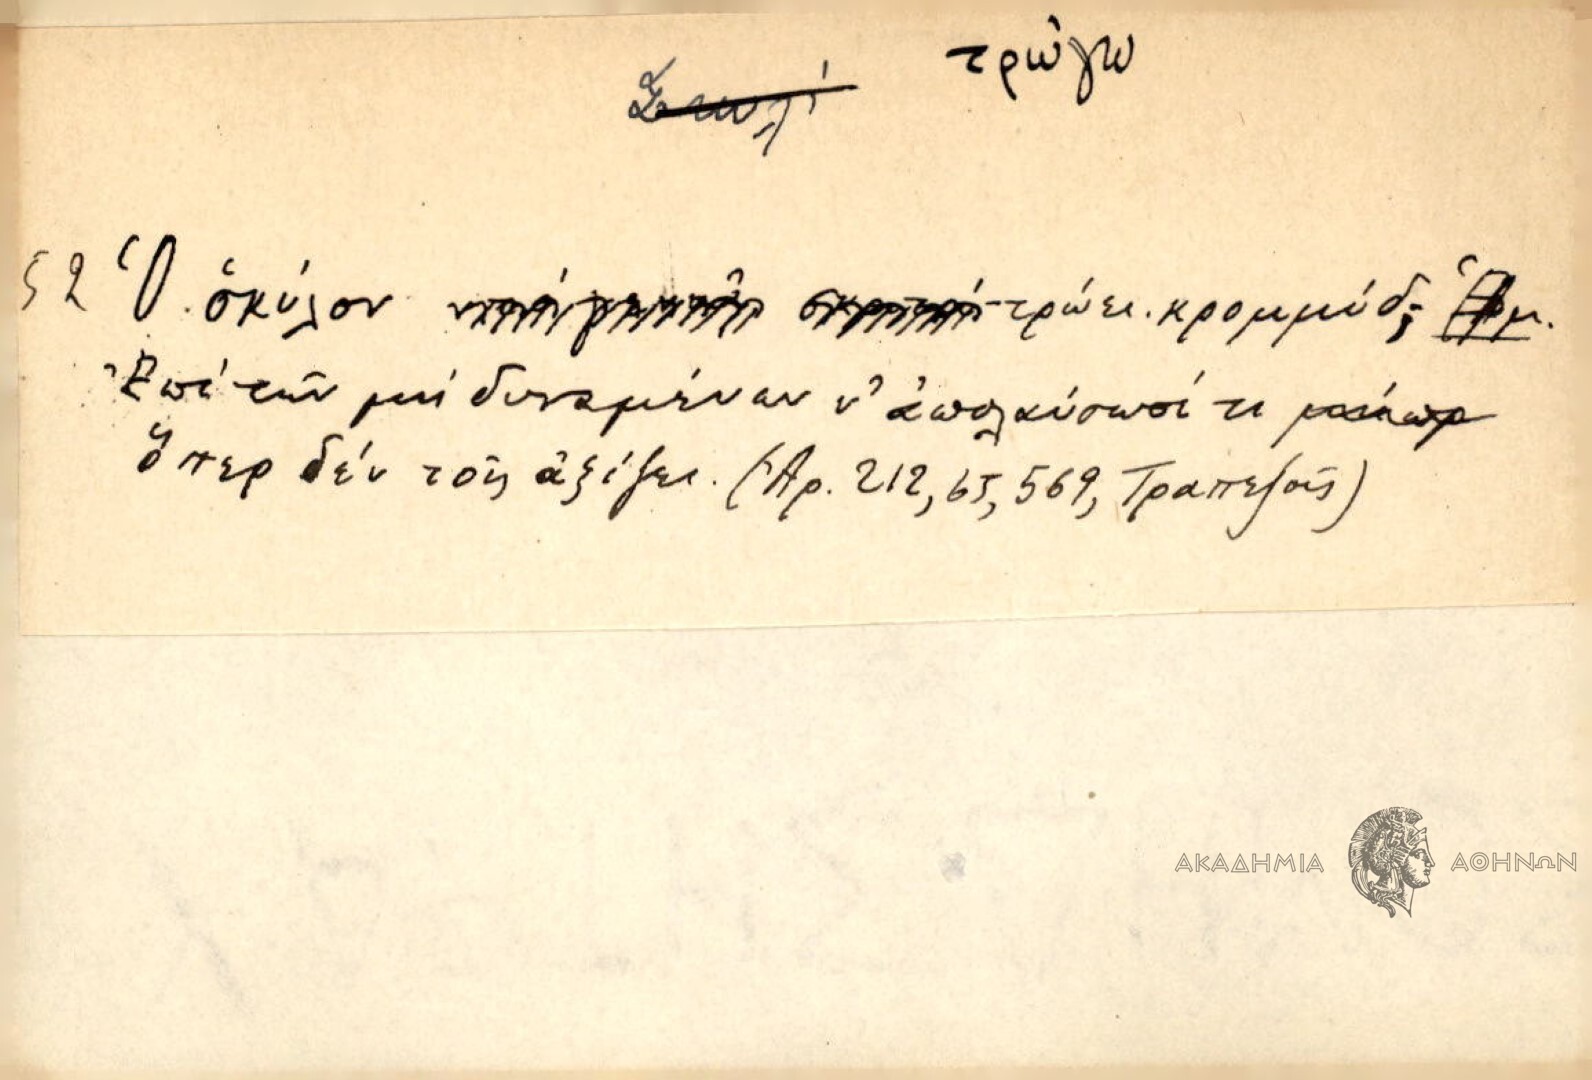 τρώγω
52 Ὁ σκύλον τρώει κρομμύδ;
Ἐπί τῶν μή δυναμένων ν' ἀπολαύσωσί τι
ὅπερ δέν τοῖς ἀξίζει. (Ἀρ. 212, 65, 569, Τραπεζοῦς)
ΑΚΑΔΗΜΙΑ ΑΘΗΝΩΝ